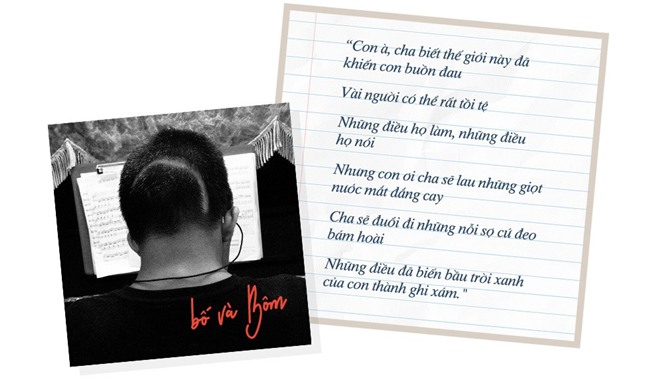 bố và Bôm
“Con à, cha biết thế giới này đã
khiến con buồn đau
Vài người có thể rất tồi tệ
Những điều họ làm, những điều
họ nói
Nhưng con ơi cha sẽ lau những giọt
nước mắt đắng cay
Cha sẽ đuổi đi những nỗi sợ cứ đeo
bám hoài
Những điều đã biến bầu trời xanh
của con thành ghi xám."